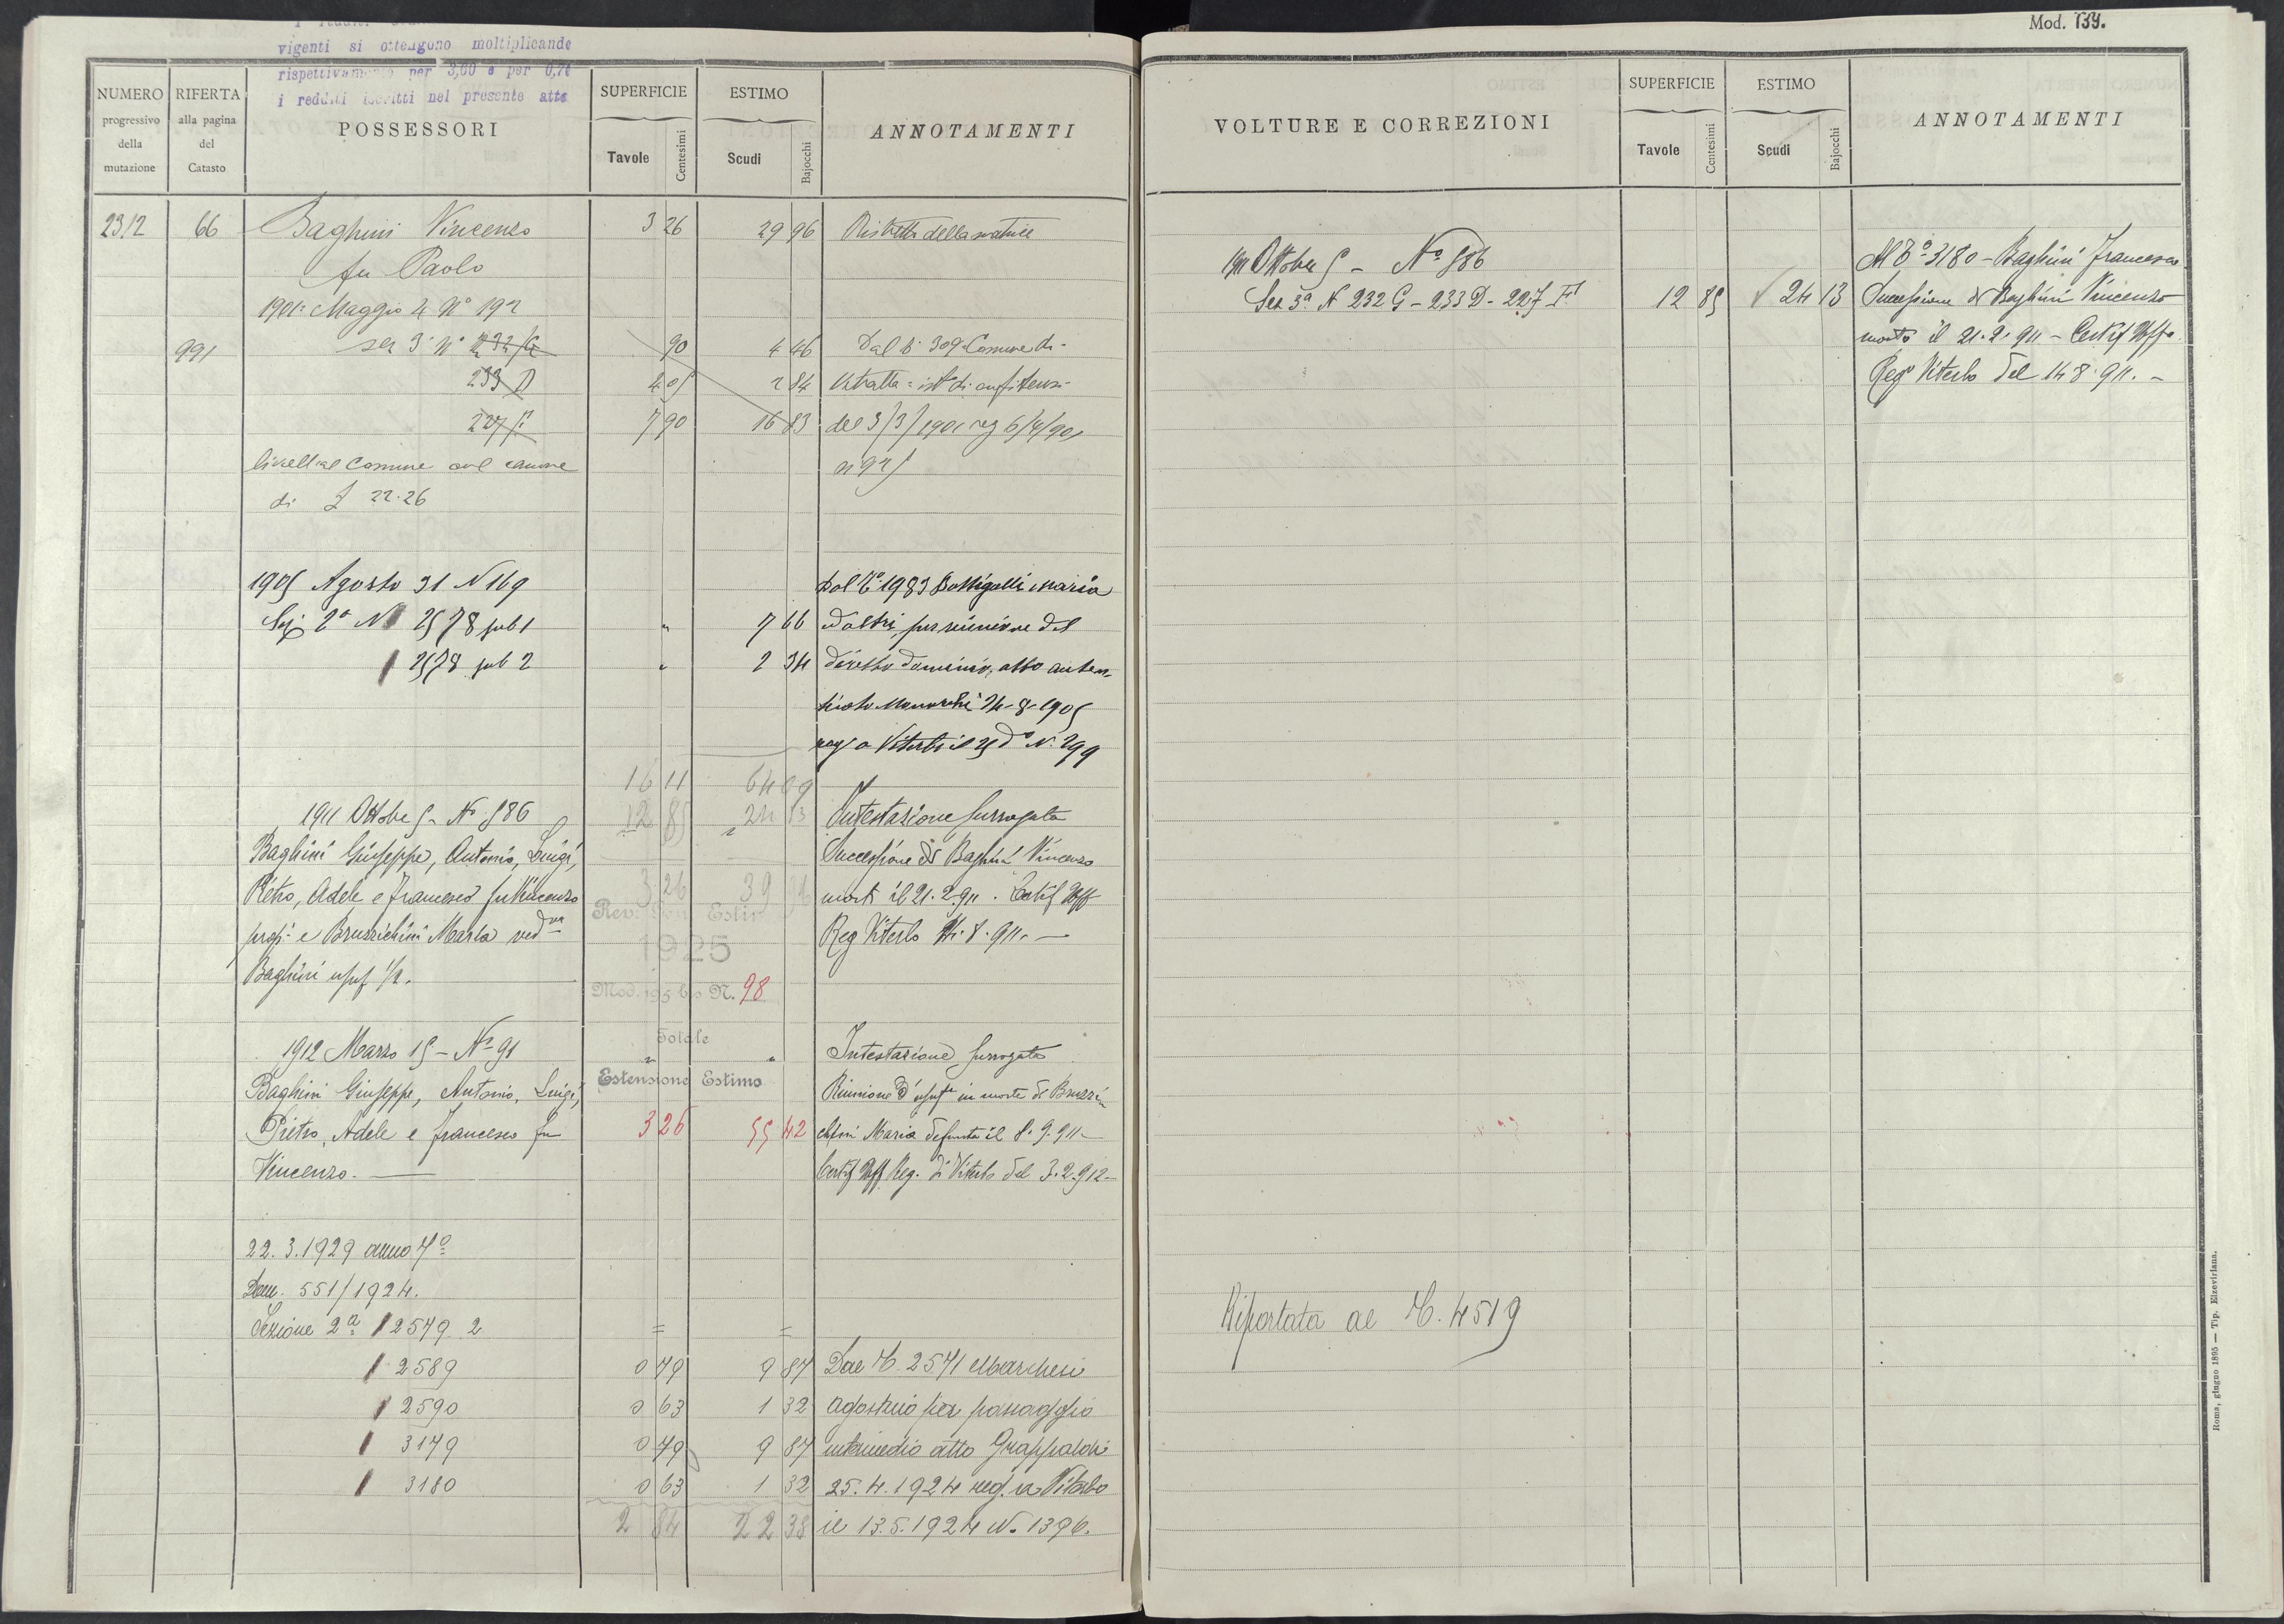 Mod. 139.
vigenti si ottengono moltiplicando
rispettivamente per 3,60 e per 0,70
i redditi iscritti nel presente atto
NUMERO progressivo della mutazione
RIFERTA alla pagina del Catasto
POSSESSORI
SUPERFICIE
Tavole Centesimi
ESTIMO
Scudi Bajocchi
ANNOTAMENTI
2312 66 Baghini Vincenzo 3 26 29 96 della matrice
fu Paolo
1901 Maggio 4 Nº 192
991 sez 3ª Nº 232/G 90 4 46 Dal 309 Comune di
233 D 4 05 2 84 Vetralla = istº di enfiteusi
227 F 7 90 16 83 del 3/3/1901 reg 6/4/901
livell al Comune col canone
di £ 22.26
1905 Agosto 31 N 169 Dal 1983 Bottigelli Maria
Sez 2ª N 2578 sub 1 " 7 66 ed altri, per riunione del
2578 sub 2 " 2 34 diretto dominio, atto auten-
ticato 24-8-1905
reg a Viterbo il 25 dº N. 299
16 11 64 09
1911 Ottobre 5 - Nº 586 12 85 24 13 Intestazione surrogata
Baghini Giuseppe, Antonio, Luigi, Successione di Baghini Vincenzo
Pietro, Adele e Francesco fu Vincenzo 3 26 39 96 morto il 21.2.911. Certif Uff
Estim
prop: e Bruzzichini Maria ved.va Reg Viterbo 14.8.911. —
1925
Baghini usuf ½.
Mod. 195 bis N. 98
Totale
1912 Marzo 15 - Nº 91 " " Intestazione surrogata
Estensione Estimo
Baghini Giuseppe, Antonio, Luigi, Riunione d'usuf.to in morte di Bruzzi-
Pietro, Adele e Francesco fu 3 26 55 42 chini Maria defunta il 8.9.911 -
Vincenzo. — Certif Uff Reg. di Viterbo del 3.2.912 -
22.3.1929 anno 7º
Dem. 551/1924.
Sezione 2ª 2579 2 = =
2589 0 79 9 87 Dal 2571 Marchesi
2590 0 63 1 32 Agostino per passaggio
3179 0 79 9 87 intermedio atto Grappaldi
3180 0 63 1 32 25.4.1924 reg. a Viterbo
2 84 22 38 il 13.5.1924 N. 1396.
VOLTURE E CORREZIONI
SUPERFICIE
Tavole Centesimi
ESTIMO
Scudi Bajocchi
ANNOTAMENTI
1911 Ottobre 5 - Nº 586 Al 3180 - Baghini Francesco
Sez 3ª N 232 G - 233 D - 227 F 12 85 24 13 Successione di Baghini Vincenzo
morto il 21.2.911 - Certif Uffo
Reg Viterbo del 14.8.911. -
Riportata al 4519
Roma, giugno 1895 — Tip. Elzeviriana.